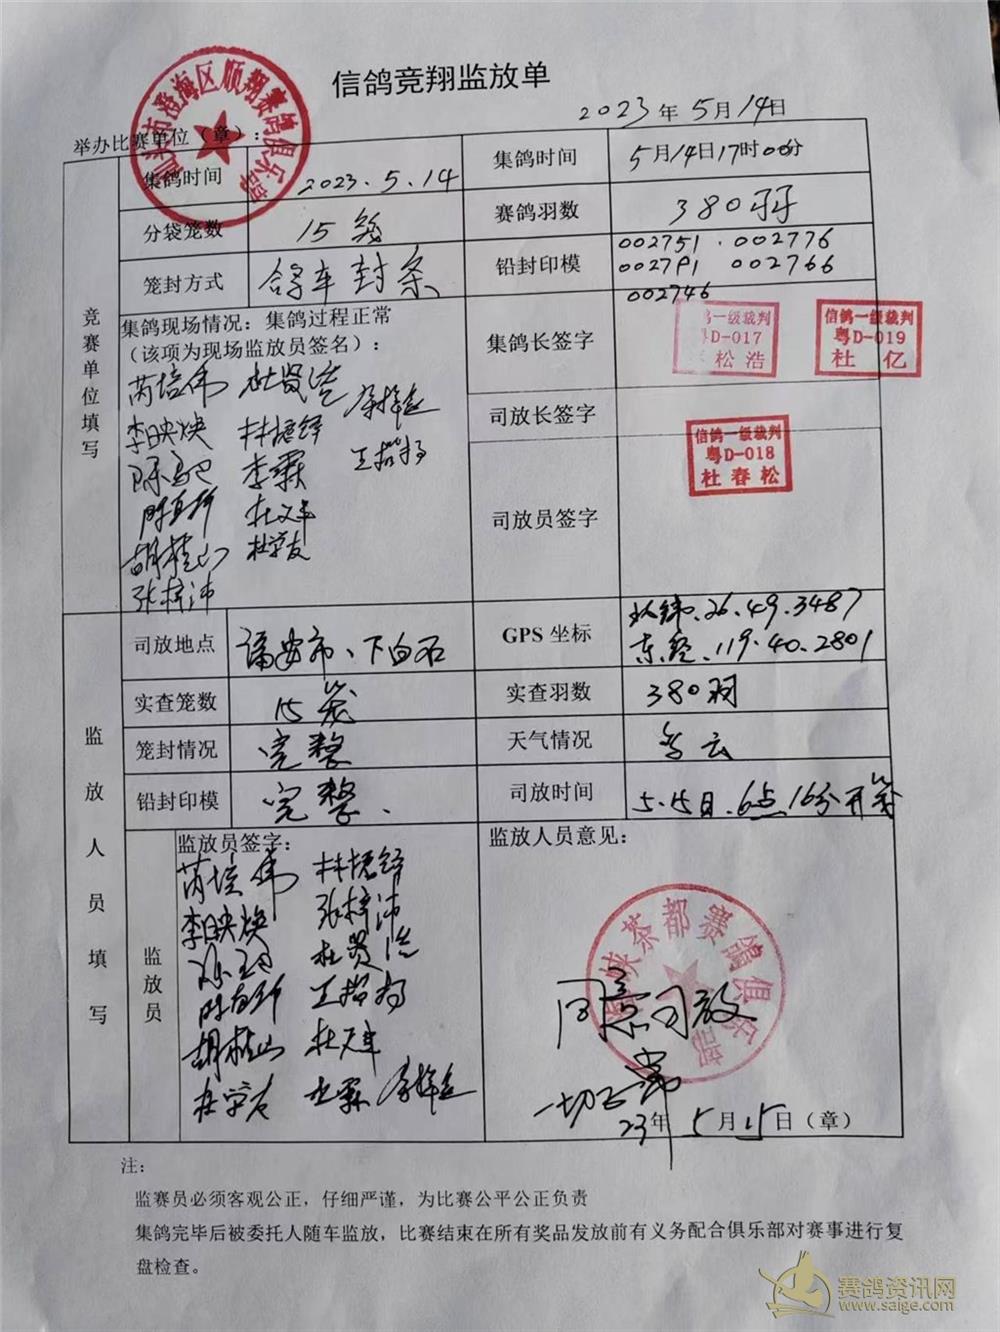 信鸽竞翔监放单
2023年5月14日
举办比赛单位（章）：
澄海区顺翔赛鸽俱乐部
竞赛单位填写
集鸽时间 2023.5.14 集鸽时间 5月14日17时00分
分袋笼数 15笼 赛鸽羽数 380羽
笼封方式 合字车封条 铅封印模 002751 . 002776
002791 002766
002746
集鸽现场情况：集鸽过程正常
（该项为现场监放员签名）：
集鸽长签字
信鸽一级裁判
粤D-017
松浩
信鸽一级裁判
粤D-019
杜亿
芮培伟 杜贤浩
李映焕 林梧锋
李霖
胡桂山 杜学友
张梓沛
司放长签字
司放员签字
信鸽一级裁判
粤D-018
杜春松
监放人员填写
司放地点 福安市、下白石 GPS 坐标 北纬.26.49.3487
东经.119.40.2801
实查笼数 15笼 实查羽数 380羽
笼封情况 完整 天气情况 多云
铅封印模 完整. 司放时间 5.15日.6点16分开笼
监放员
监放员签字：
芮培伟 林梧锋
李映焕 张梓沛
杜贤浩
胡桂山
杜学友
监放人员意见：
茶都赛鸽俱乐部
同意司放
一切正常
23年5月15日（章）
注：
监赛员必须客观公正，仔细严谨，为比赛公平公正负责
集鸽完毕后被委托人随车监放，比赛结束在所有奖品发放前有义务配合俱乐部对赛事进行复
盘检查。
赛鸽资讯网
www.saige.com